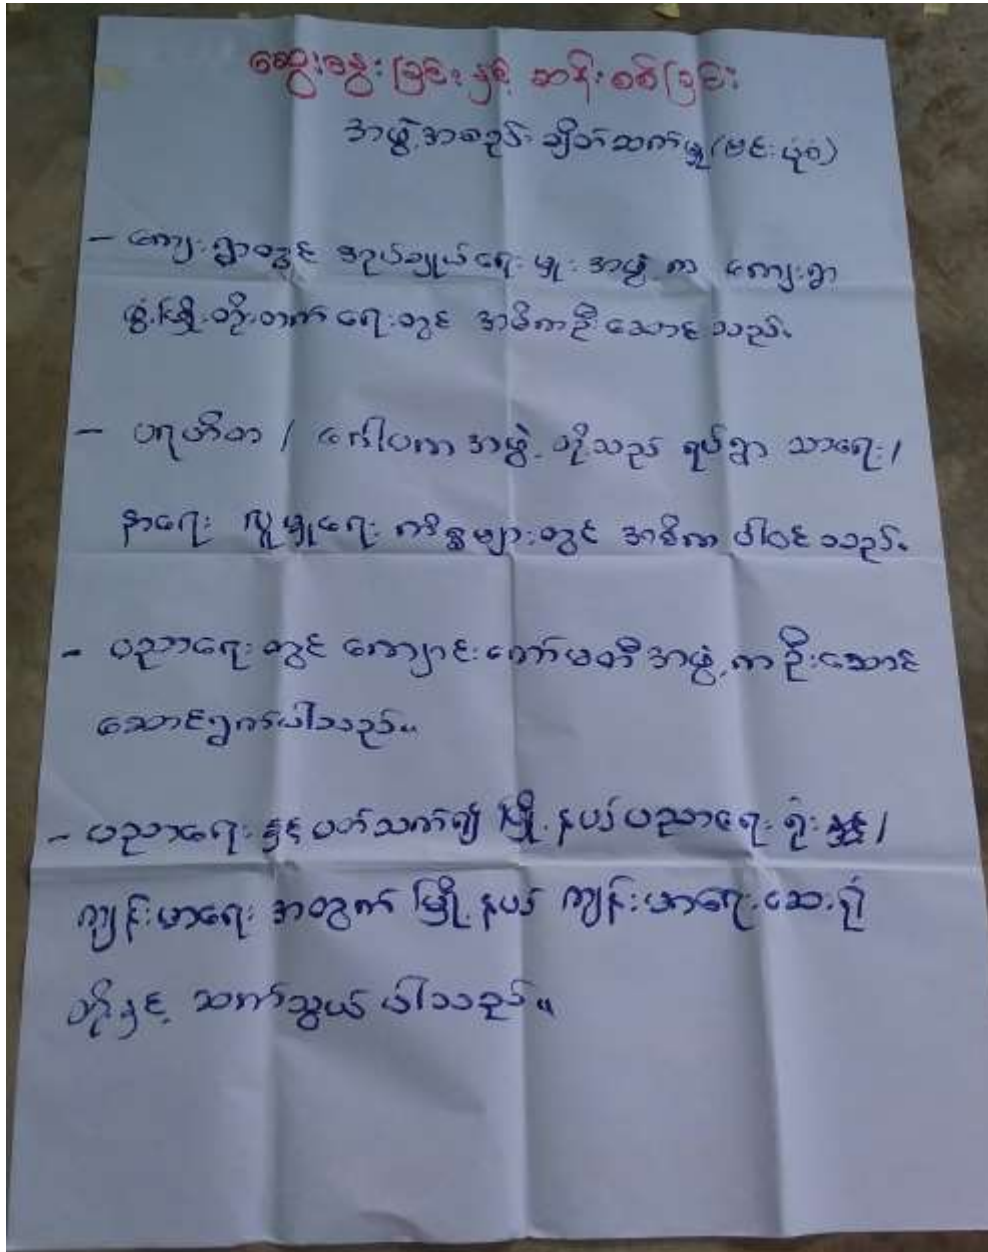 ဆွေးနွေးခြင်းနှင့် ဆန်းစစ်ခြင်း
အဖွဲ့အစည်း ချိတ်ဆက်မှု (ဗင်းပုံစံ)
- ကျေးရွာတွင် အုပ်ချုပ်ရေးမှူးအဖွဲ့က ကျေးရွာ
ဖွံ့ဖြိုးတိုးတက်ရေးတွင် အဓိကဦးဆောင်သည်။
- ပရဟိတ / ဂေါပကအဖွဲ့တို့သည် ရပ်ရွာ သာရေး /
နာရေး လူမှုရေး ကိစ္စများတွင် အဓိက ပါဝင်သည်။
- ပညာရေးတွင် ကျောင်းကော်မတီအဖွဲ့က ဦးဆောင်
ဆောင်ရွက်ပါသည်။
- ပညာရေးနှင့် ပတ်သက်၍ မြို့နယ်ပညာရေးရုံး /
ကျန်းမာရေးအတွက် မြို့နယ် ကျန်းမာရေးဆေးရုံ
တို့နှင့် ဆက်သွယ်ပါသည်။